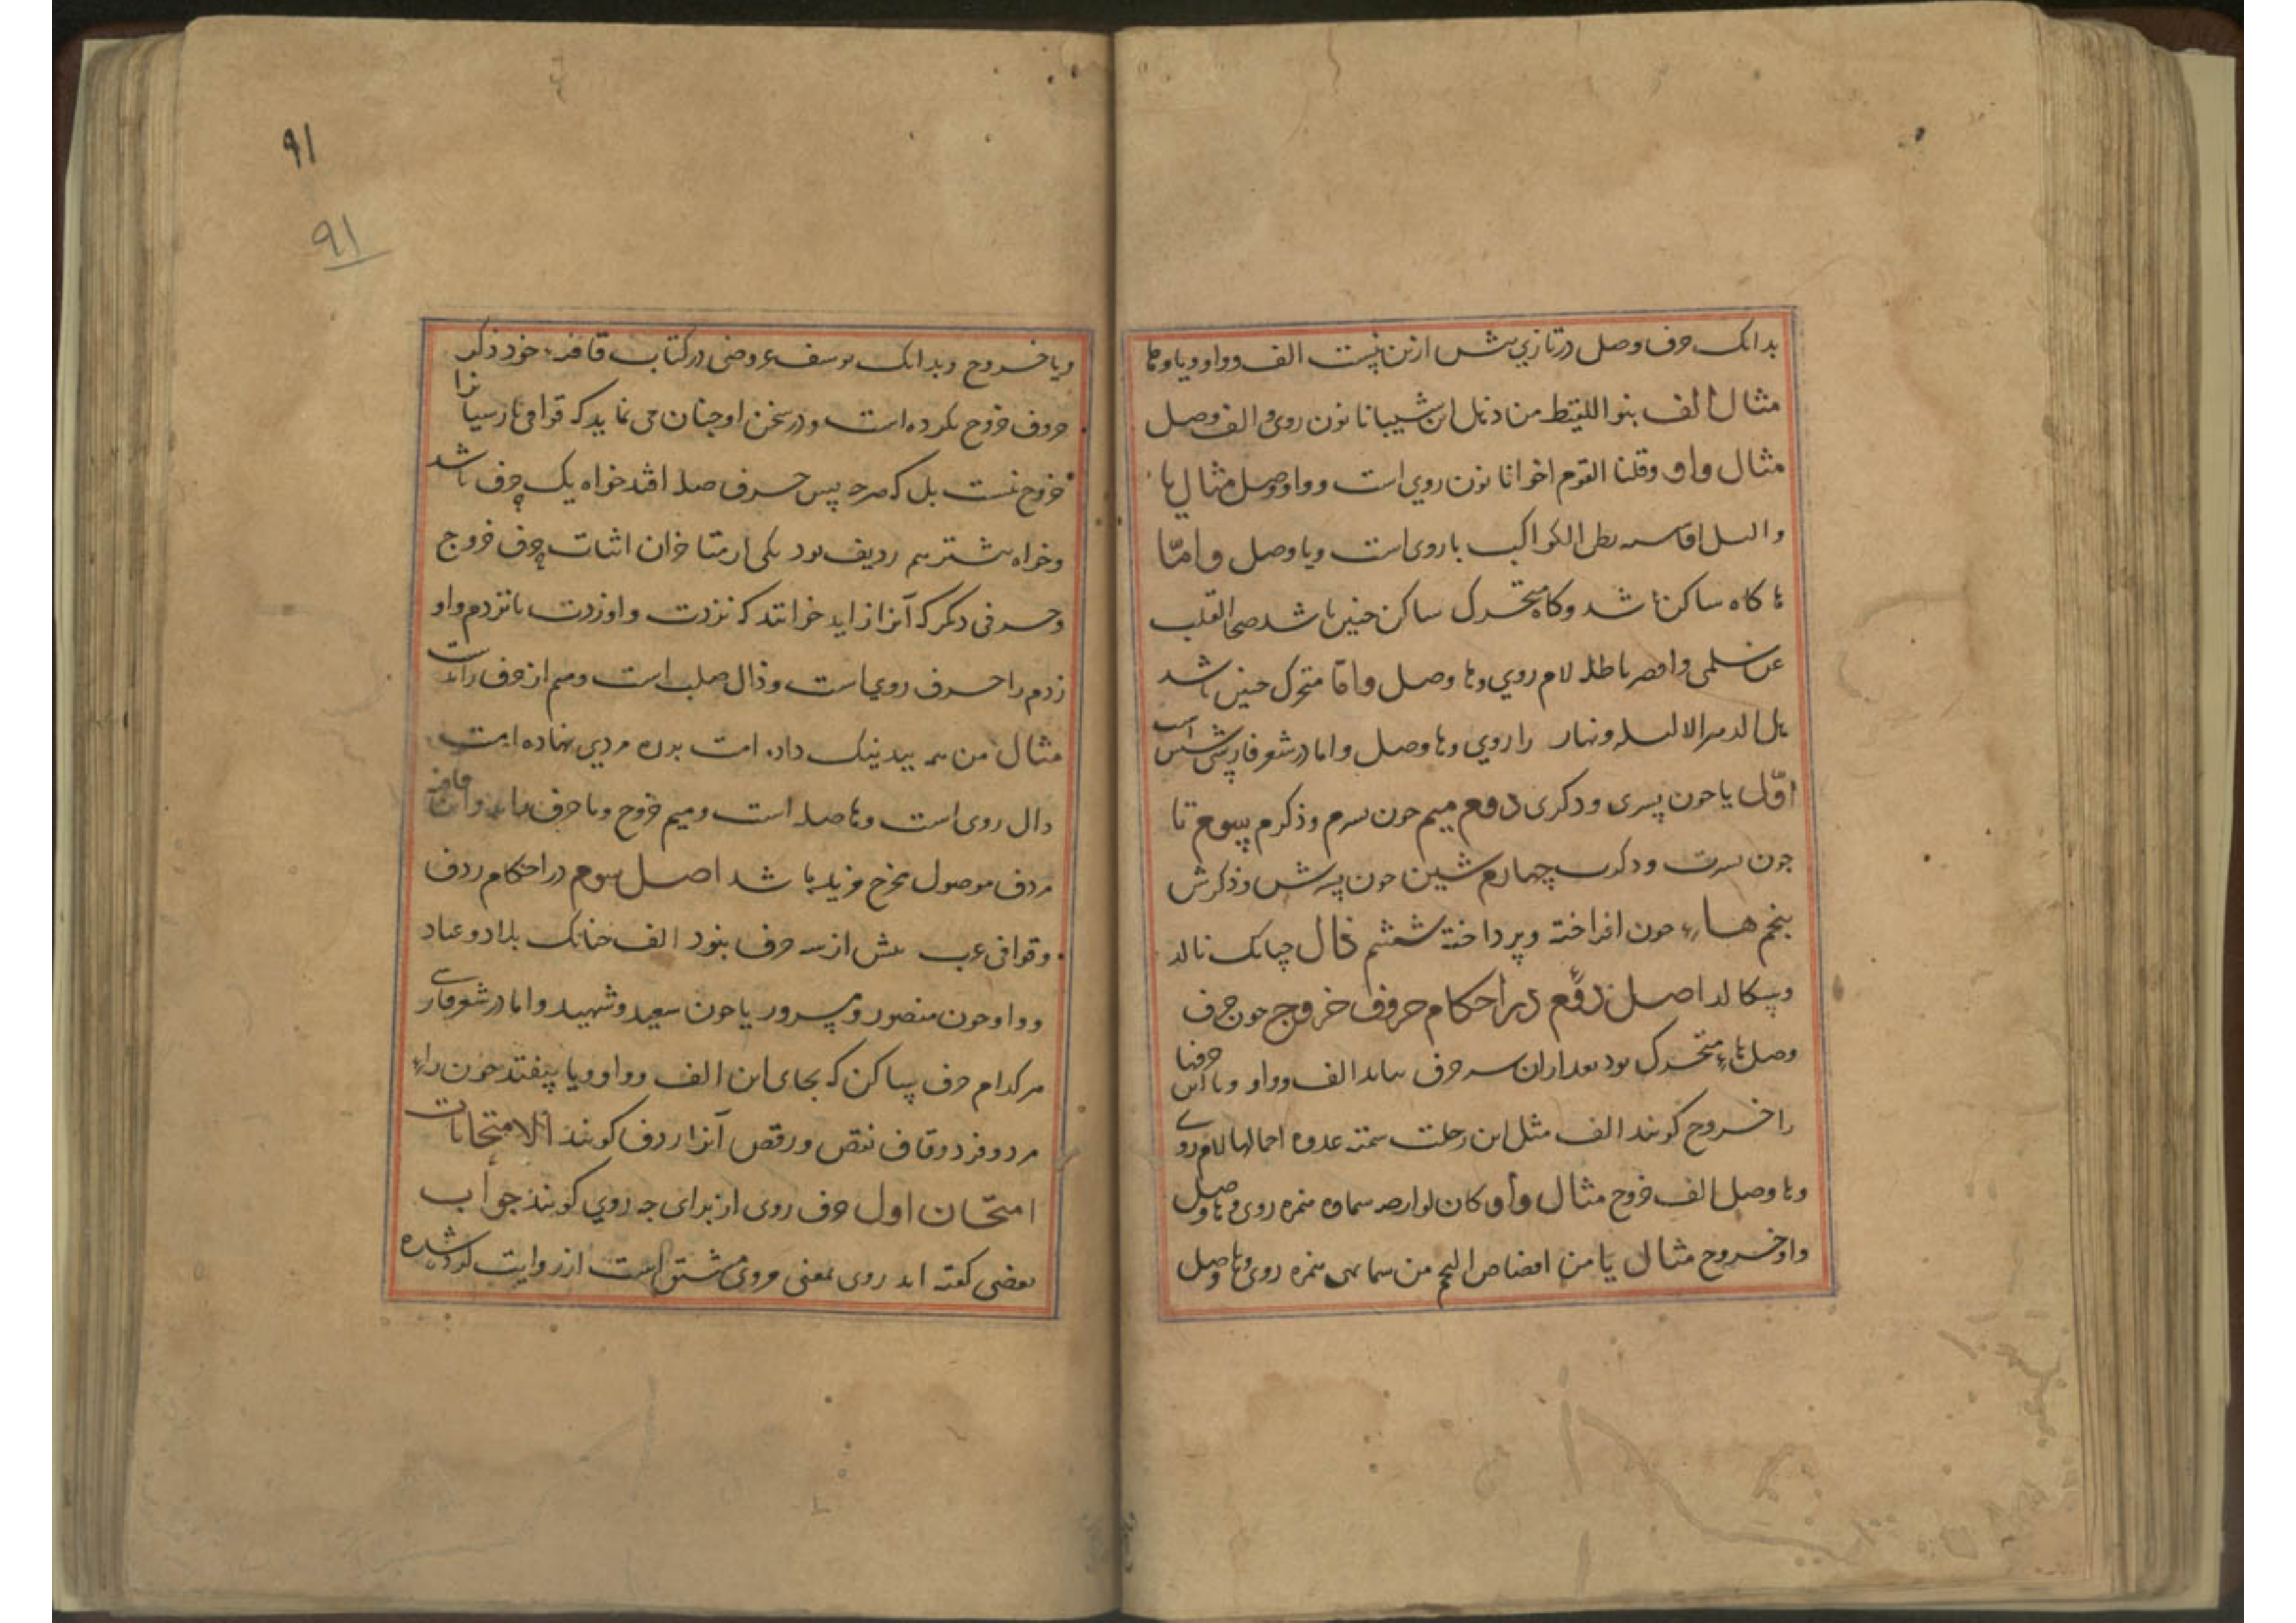 بدانک حرف وصل در تازی بیش ازین نیست الف و واو و یا و ها
مثال الف بنو اللقیطة من ذهل ابن شیبانا نون روی و الف وصل
مثال واو وقلنا القوم اخوانا نون روی است و واو وصل مثال یا
ولیل اقاسیه بطی الکواکب با روی است و یا وصل و امّا
ها کاه ساکن باشد و کاه متحرک ساکن چنین باشد صحا القلب
عن سلمی و اقصر باطله لام روی و ها وصل و امّا متحرک چنین باشد
هل الدهر الا لیلة و نهار را روی و ها وصل و اما در شعر فارسی شش است
اوّل یا چون پسری و دکری دوم میم چون پسرم و ذکرم سوم تا
چون پسرت و دکرت چهارم شین چون پسرش و ذکرش
پنجم هاء چون افراخته و پرداخته ششم ذال چنانک نالد
وسکالد اصل دوم در احکام حروف خروج چون حرف
وصل هاء متحرک بود بعد ازان سه حرف بیاید الف و واو و یا این حرفها
را خروج کویند الف مثل این رحلت سمیة غدوة اجمالها لام روی
و ها وصل الف خروج مثال واو کان لون ارضه سماوه همزه روی و ها وصل
واو خروج مثال یا من همزه روی و ها وصل
و یا خروج و بدانک یوسف عروضی در کتاب قافیه خود ذکر
حروف خروج نکرده است و در سخن او چنان می نماید که قوافی پارسیانرا
خروج نیست بل که هرچه پس حرف صله افتد خواه یک حرف باشد
و خواه بیشتر هم ردیف بود یکی از متاخران اثبات حرف خروج
و حرفی دیکر که آنرا زاید خوانند که نزدت و اوزدت تا نزدم و او
زدم را حرف روی است و ذال صلب است و میم از حرف زاید است
مثال من همه بیدینک داده امت بدره مردی نهاده امت
دال روی است و ها صله است و میم خروج و تا حرف زاید و این قافیه
مردف موصول مخرج مزید باشد اصل سوم در احکام ردف
و قوافی عرب بیش از سه حرف نبود الف چنانک بلاد و عباد
و واو چون منصور و مسرور یا چون سعید و شهید و اما در شعر فارسی
هرکدام حرف ساکن که بجای این الف و واو و یا بیفتد چون راء
مرد و فرد و قاف نقص و رقص آنرا ردف کویند الامتحانات
امتحان اول حرف روی از برای چه روی کویند جواب
بعضی کفته اند روی بمعنی مروی مشتق است از روایت کرده شده
۹۱
۹۱